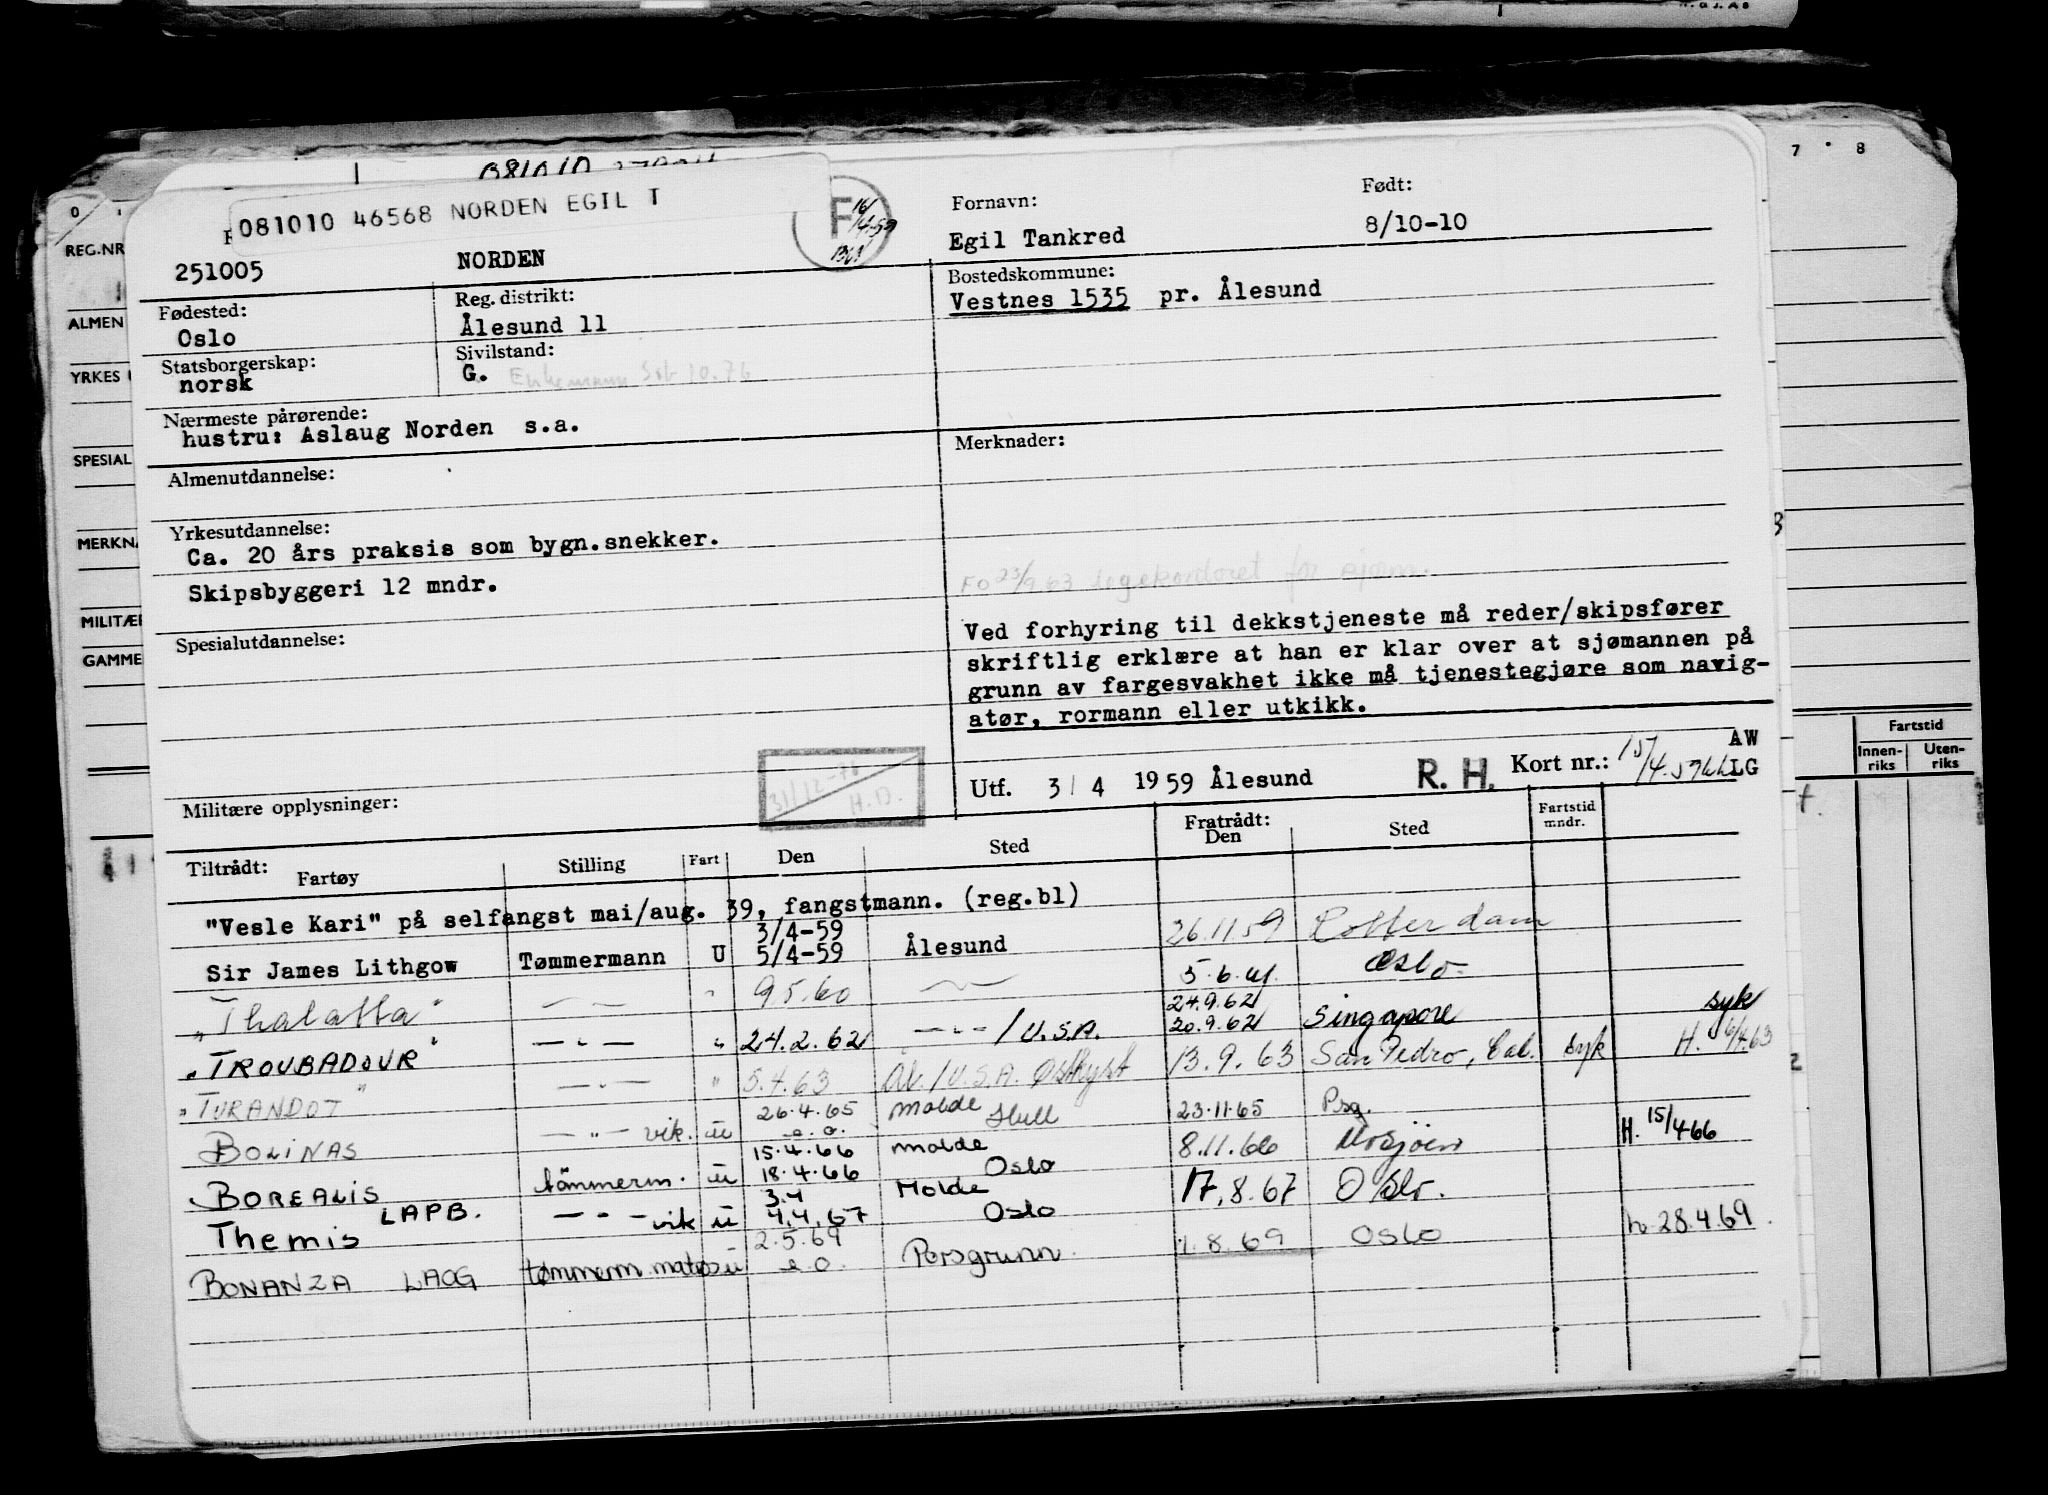 081010 46568 NORDEN EGIL T
F 16/4-59
251005 NORDEN
Fornavn: Født:
Egil Tankred 8/10-10
Fødested: Reg. distrikt: Bostedskommune:
Oslo Ålesund 11 Vestnes 1535 pr. Ålesund
Statsborgerskap: Sivilstand:
norsk G. Enkemann Sst 10.76
Nærmeste pårørende:
hustru: Aslaug Norden s.a.
Merknader:
Almenutdannelse:
Yrkesutdannelse:
Ca. 20 års praksis som bygn.snekker.
Skipsbyggeri 12 mndr.
Fo 23/9.63 legekontoret for sjøm.
Spesialutdannelse:
Ved forhyring til dekkstjeneste må reder/skipsfører
skriftlig erklære at han er klar over at sjømannen på
grunn av fargesvakhet ikke må tjenestegjøre som navig-
atør, rormann eller utkikk.
31/12-76
H.D.
Militære opplysninger:
Utf. 3/4 1959 Ålesund R. H. Kort nr.: AW
LG
Tiltrådt: Fratrådt:
Fartøy Stilling Fart Den Sted Den Sted Fartstid mndr.
"Vesle Kari" på selfangst mai/aug. 39, fangstmann. (reg.bl)
3/4-59
Sir James Lithgow Tømmermann U 5/4-59 Ålesund 26.11.59 Rotterdam
"Thalatta" — — " 9.5.60 — 5.6.61 Oslo.
24.9.62
"TROUBADOUR" — " — " 24.2.62 — " — / U.S.A. 20.9.62 Singapore syk
"TURANDOT" — " — " 5.4.63 Ål./U.S.A. Østkyst 13.9.63 San Pedro, Cal. syk H. 6/4.63
26.4.65 Molde
BOLINAS — " — vik. u e.o. Hull 23.11.65 Psg.
15.4.66 Molde
BOREALIS tömmerm. u 18.4.66 Oslo 8.11.66 Mosjøen H. 15/4 66
3.4 Molde
Themis LAPB. — " — vik u 4.4.67 Oslo 17.8.67 Oslo.
2.5.69
BONANZA LAOG tømmerm. matros u e.o. Porsgrunn 1.8.69 Oslo h. 28.4.69.
REG.NR
ALMEN
YRKES
SPESIAL
MERKNA
MILITÆR
GAMME
7 8
Fartstid
Innen-
riks
Uten-
riks